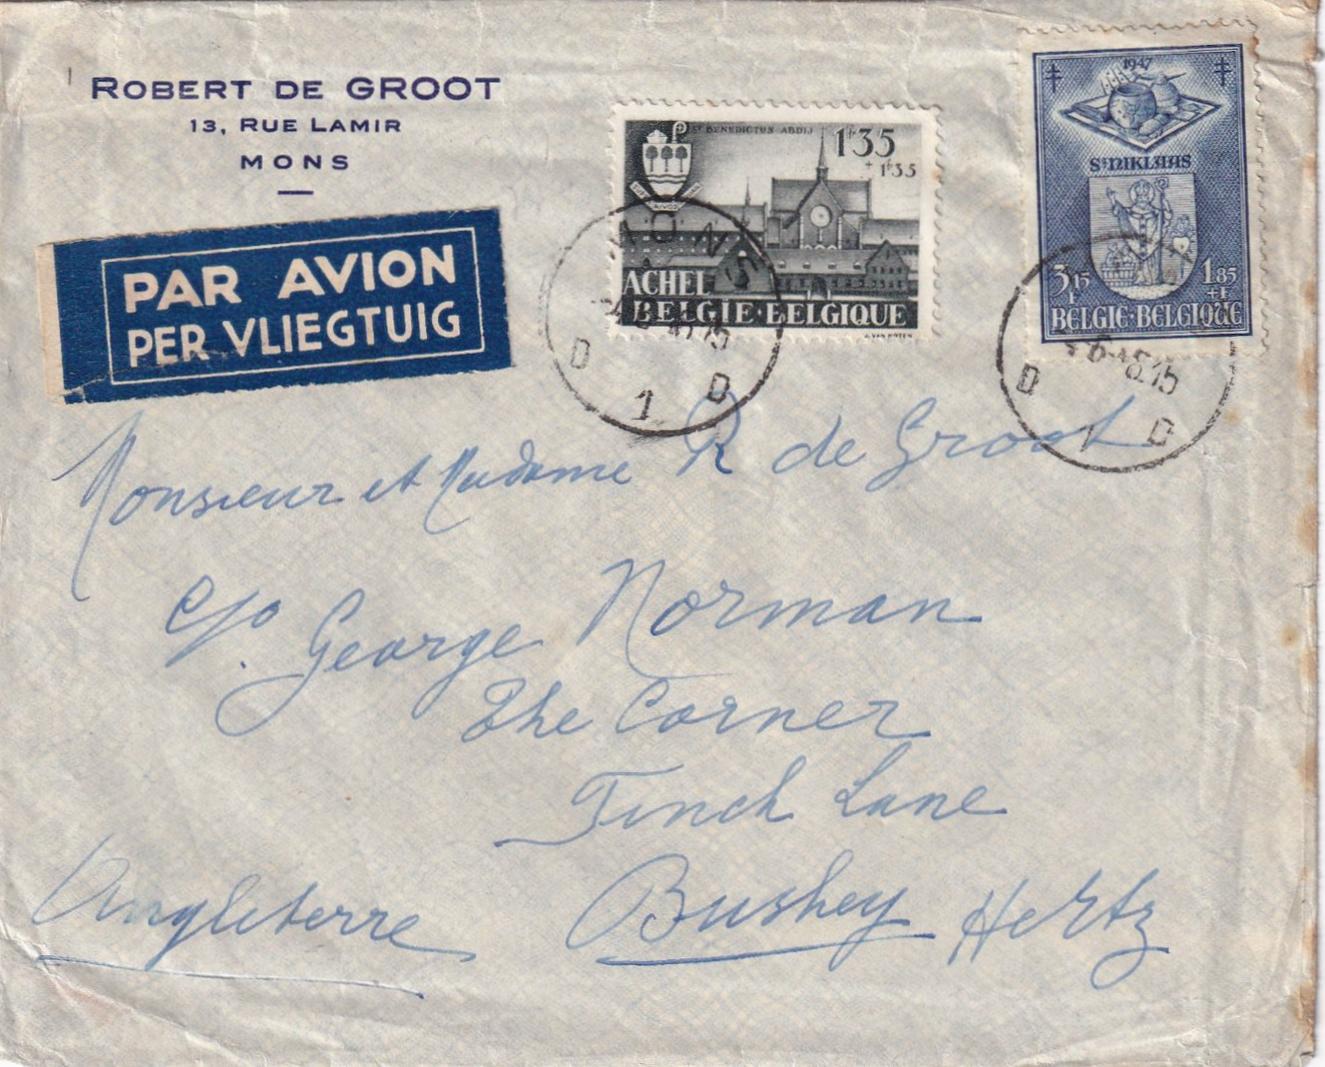 ROBERT DE GROOT
13, RUE LAMIR
MONS
PAR AVION
PER VLIEGTUIG
ST BENEDICTUS ABDIJ
1F35
+1F35
ACHEL
BELGIE·BELGIQUE
1947
ST NIKLAAS
3F15
1,85
+1F
BELGIE·BELGIQUE
MONS
D 1 D
D 1 D
Monsieur et Madame R de Groot
c/o. George Norman
The Corner
Finch Lane
Bushey Hertz
Angleterre